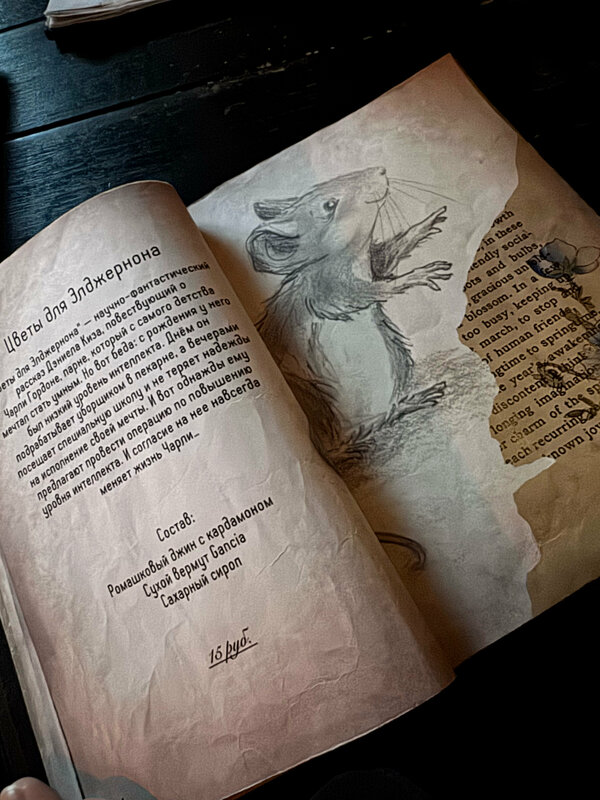 Цветы для Элджернона
Цветы для Элджернона" — научно-фантастический
рассказ Дэниела Киза, повествующий о
Чарли Гордоне, парне, который с самого детства
мечтал стать умным. Но вот беда: с рождения у него
был низкий уровень интеллекта. Днём он
подрабатывает уборщиком в пекарне, а вечерами
посещает специальную школу и не теряет надежды
на исполнение своей мечты. И вот однажды ему
предлагают провести операцию по повышению
уровня интеллекта. И согласие на нее навсегда
меняет жизнь Чарли...
Состав:
Ромашковый джин с кардамоном
Сухой вермут Gancia
Сахарный сироп
15 руб.
in these
endly socia-
ots and bulbs,
gracious un
blossom. In a
too busy, keeping
march, to stop
of human friend
gtime to spring
the year's awaken
discontent, thin
longing imaginat
r charm of the
each recurring
known jo